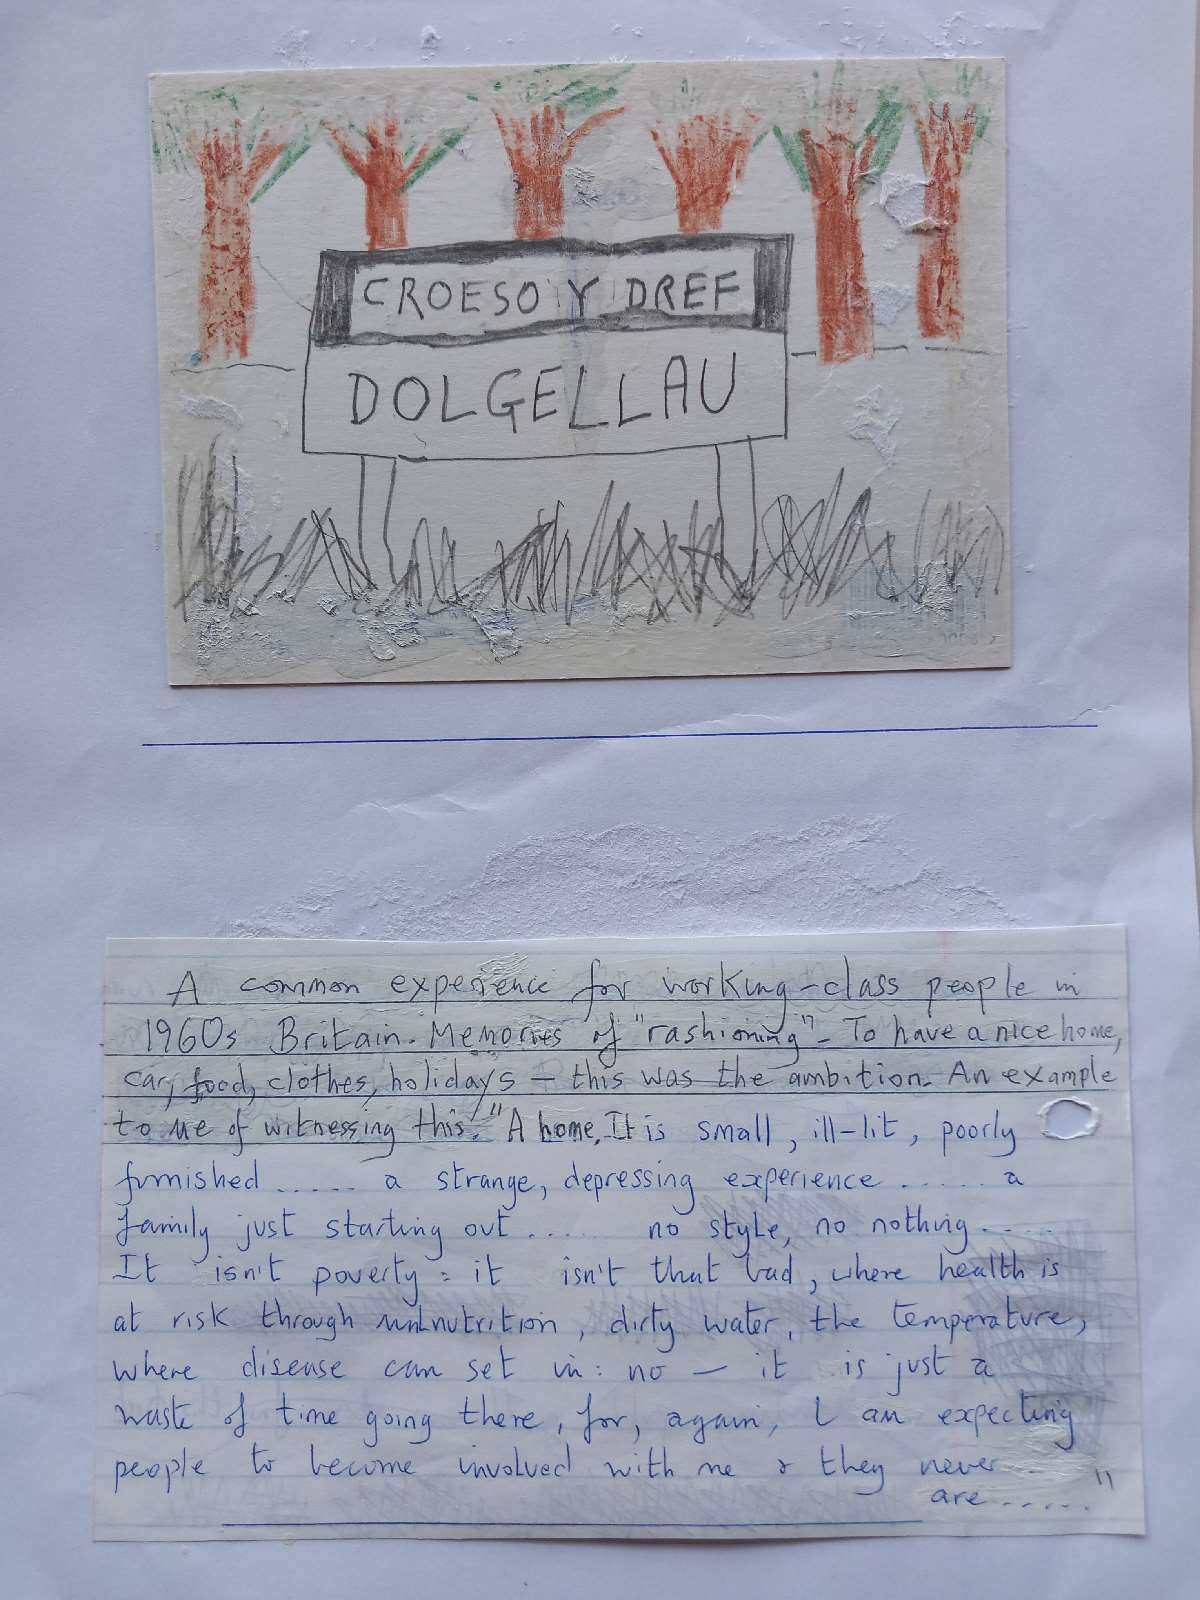 CROESO Y DREF
DOLGELLAU
A common experience for working-class people in
1960s Britain. Memories of "rashioning". To have a nice home,
car, food, clothes, holidays – this was the ambition. An example
to me of witnessing this. "A home, It is small, ill-lit, poorly
furnished ..... a strange, depressing experience ...... a
family just starting out ...... no style, no nothing .....
It isn't poverty: it isn't that bad, where health is
at risk through malnutrition, dirty water, the temperature,
where disease can set in: no – it is just a
waste of time going there, for, again, I am expecting
people to become involved with me & they never
are ....."